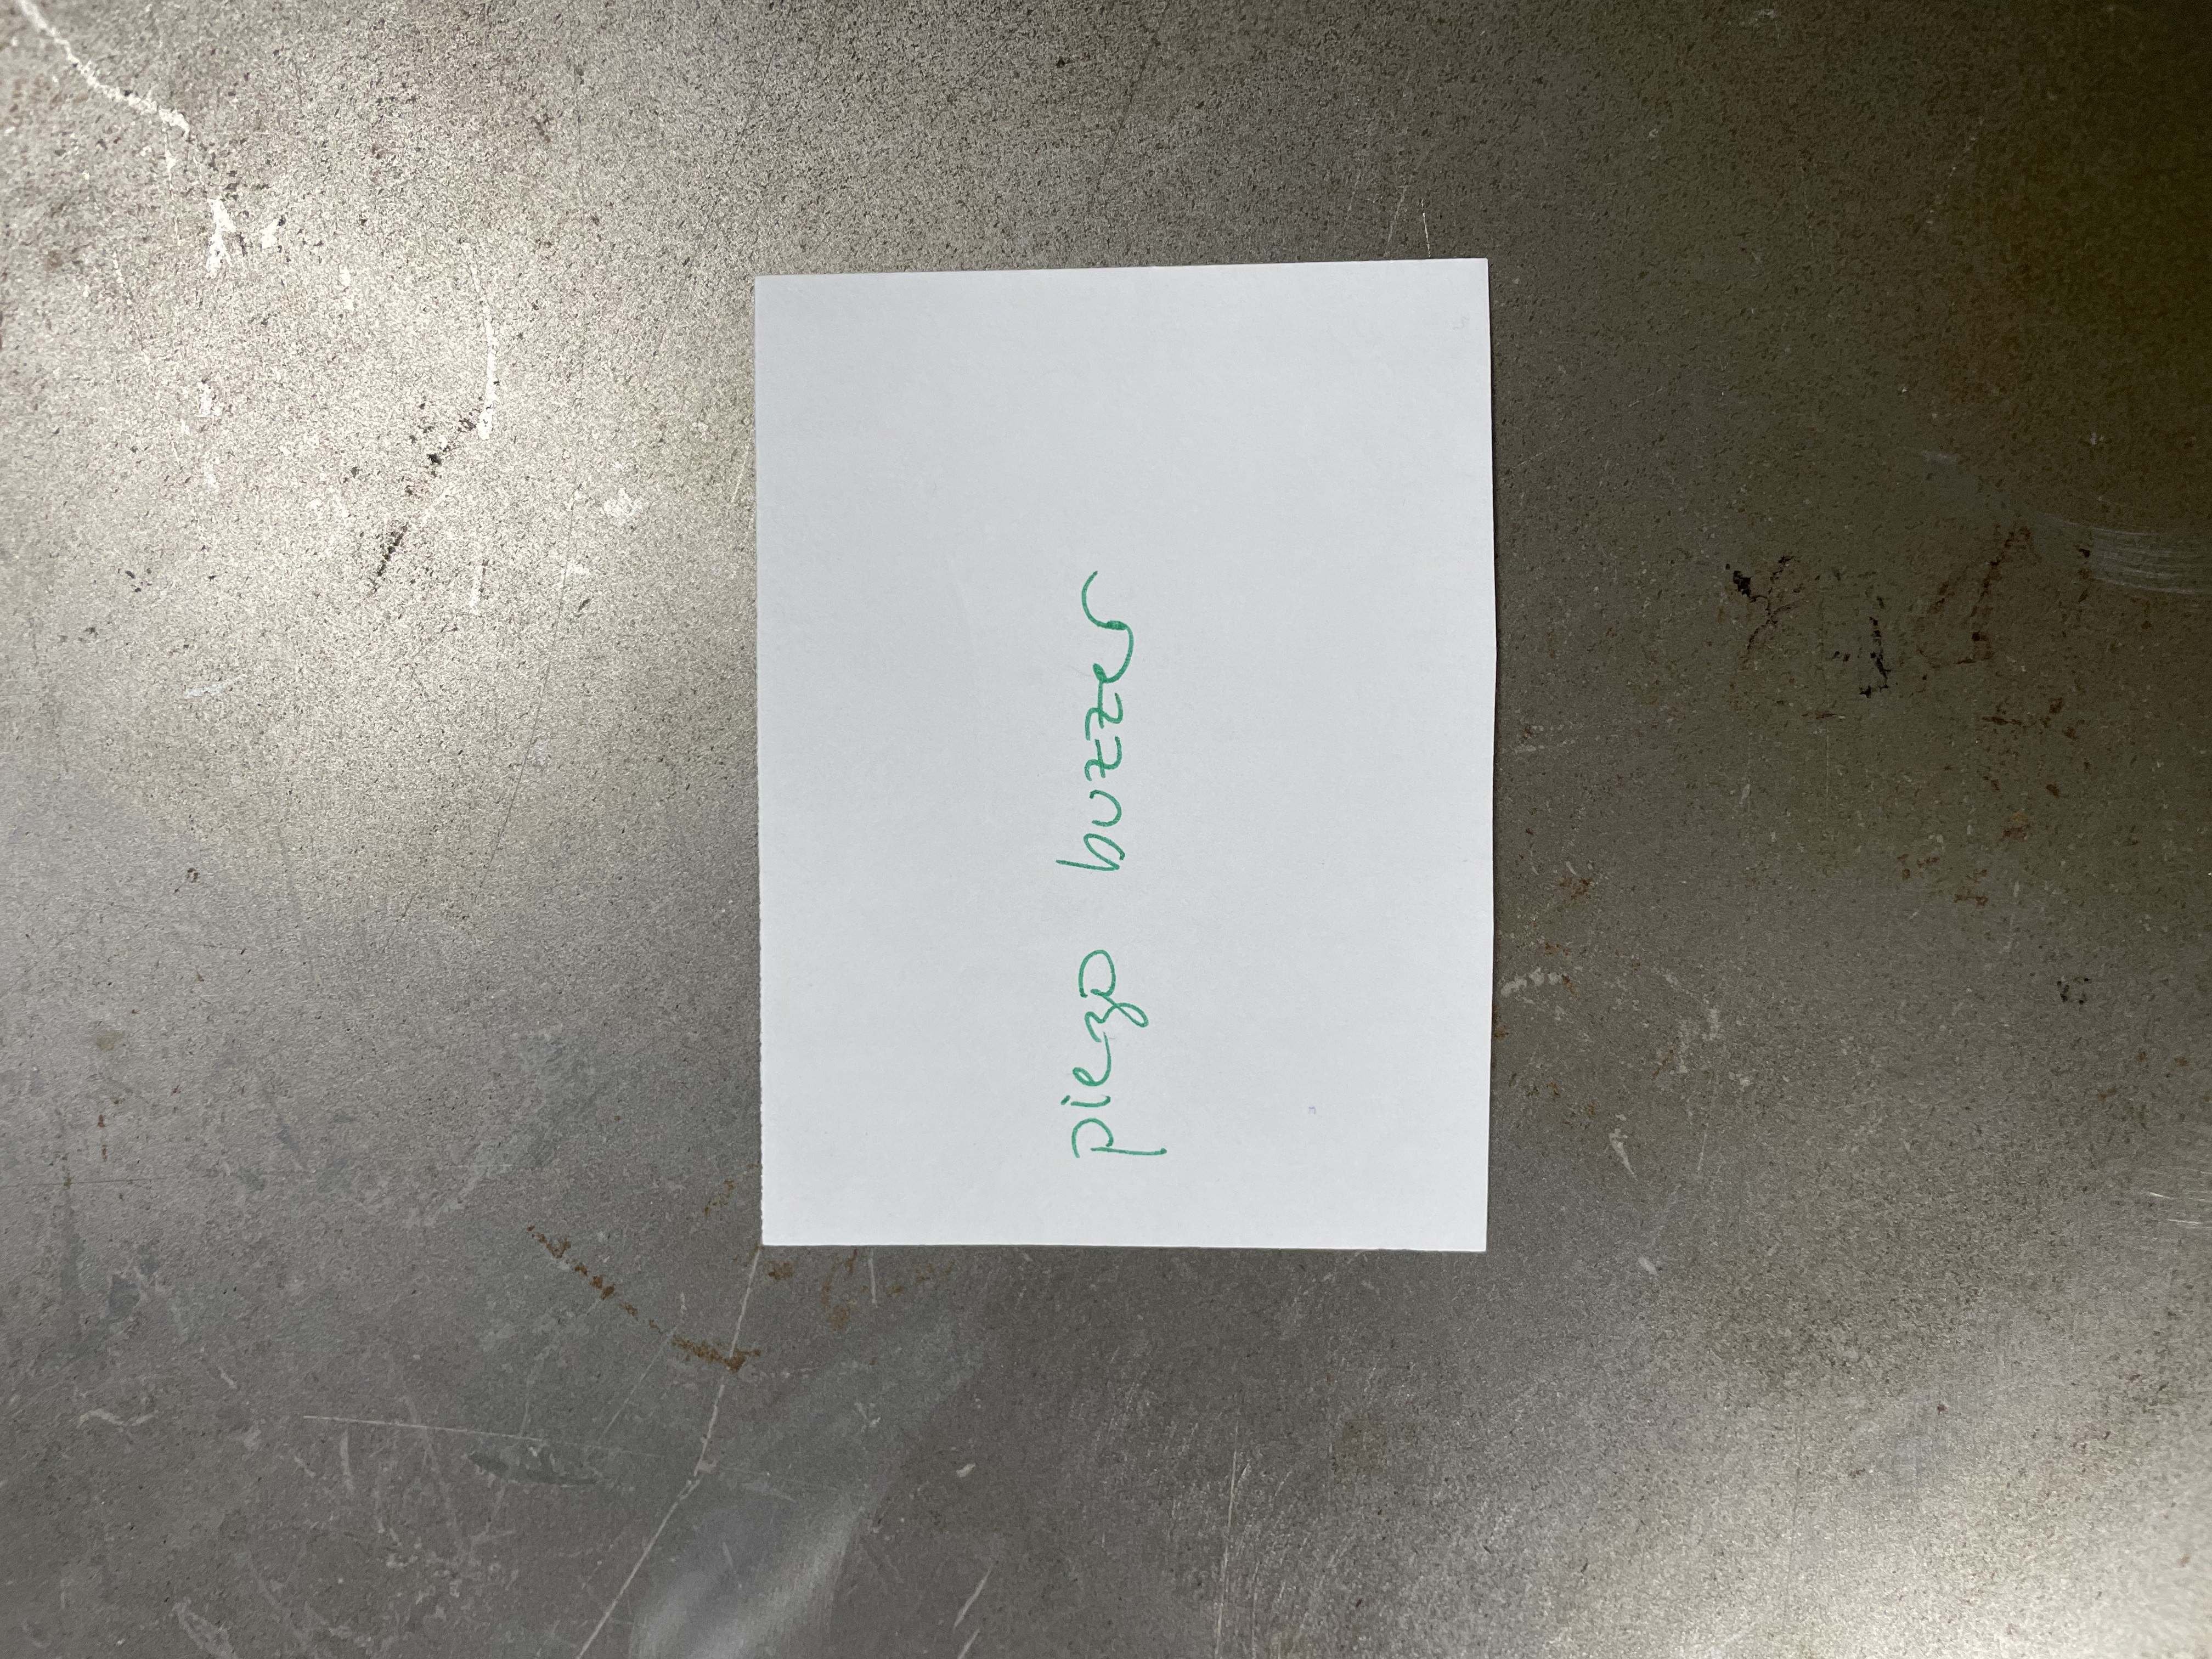 piezo buzzer